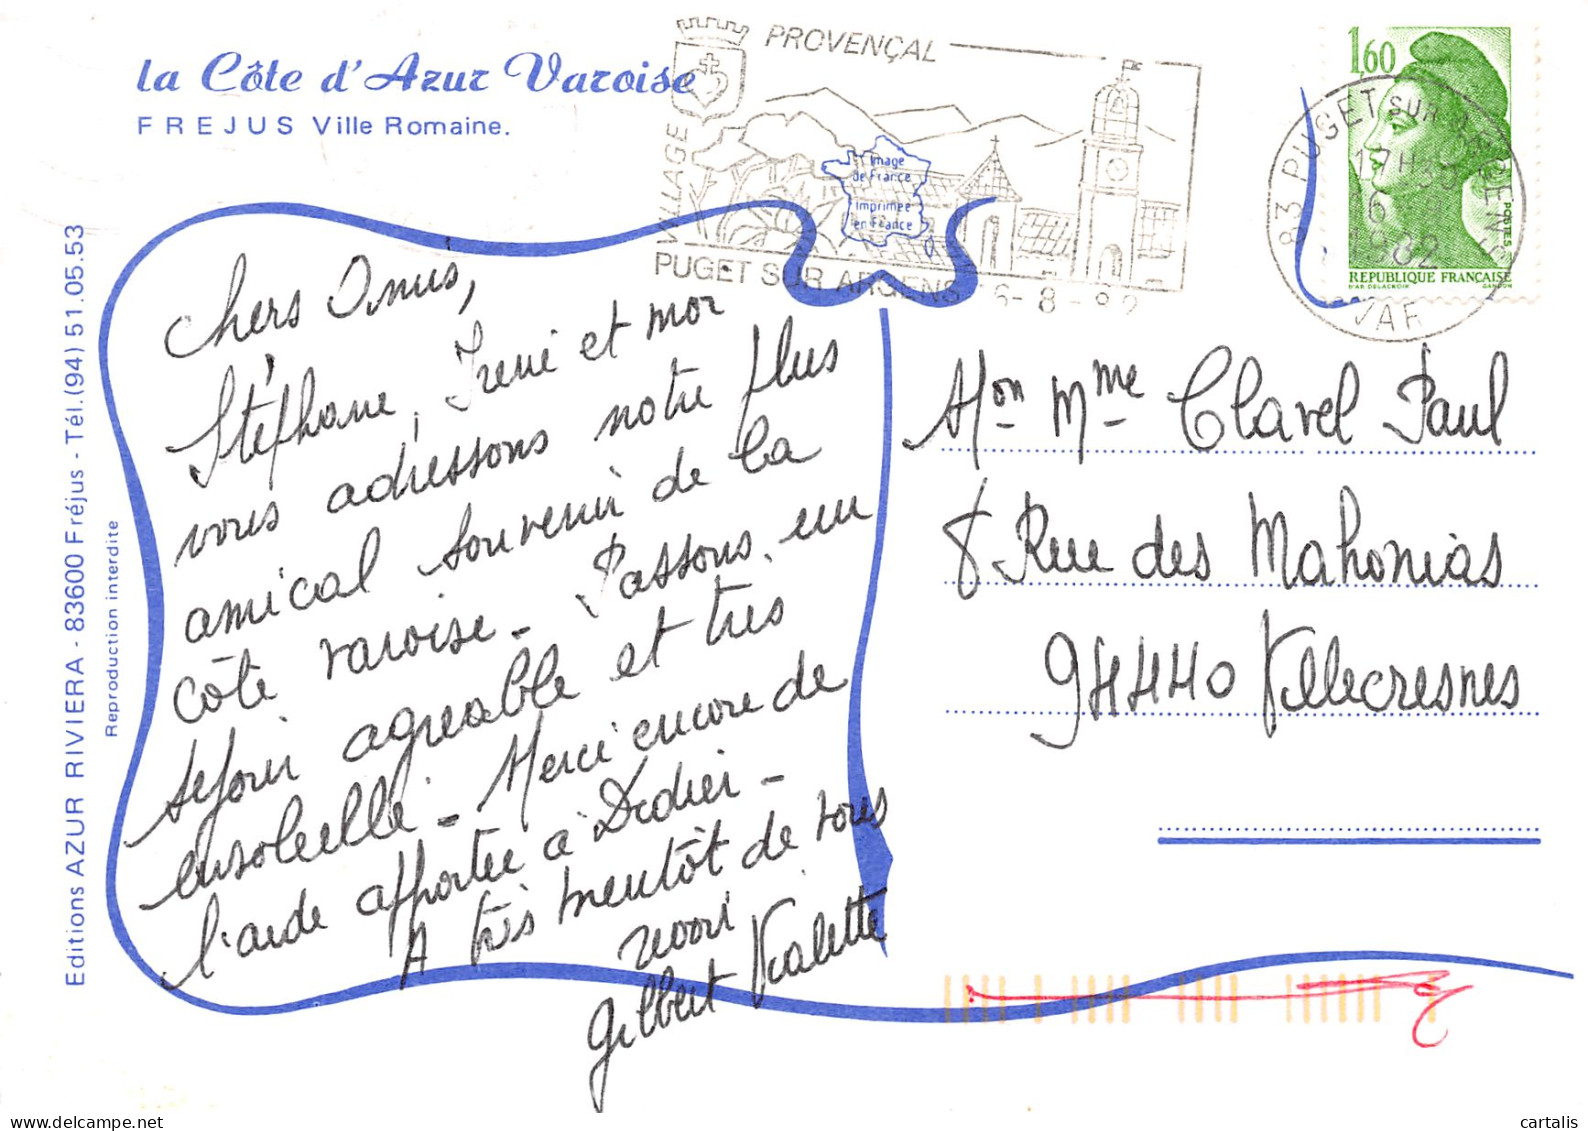 la Côte d'Azur Varoise
FREJUS Ville Romaine.
Editions AZUR RIVIERA - 83600 Fréjus - Tél.(94) 51.05.53
Reproduction interdite
VILLAGE
PROVENÇAL
PUGET SUR ARGENS 6-8-82
Image
de France
imprimée
en France
1,60
REPUBLIQUE FRANÇAISE
POSTES
D'AP. DELACROIX
GANDON
83 PUGET SUR ARGENS
17H30
6
1982
VAR
Chers Amis,
Stéphane, Irene et moi
vous adressons notre plus
amical souvenir de la
côte varoise - Passons un
séjour agreable et très
ensoleillé - Merci encore de
l'aide apportée à Didier -
A très bientôt de vous
revoir
Gilbert Violette
Mon Mme Clavel Paul
8 Rue des Mahonias
94440 Villecresnes
cartalis